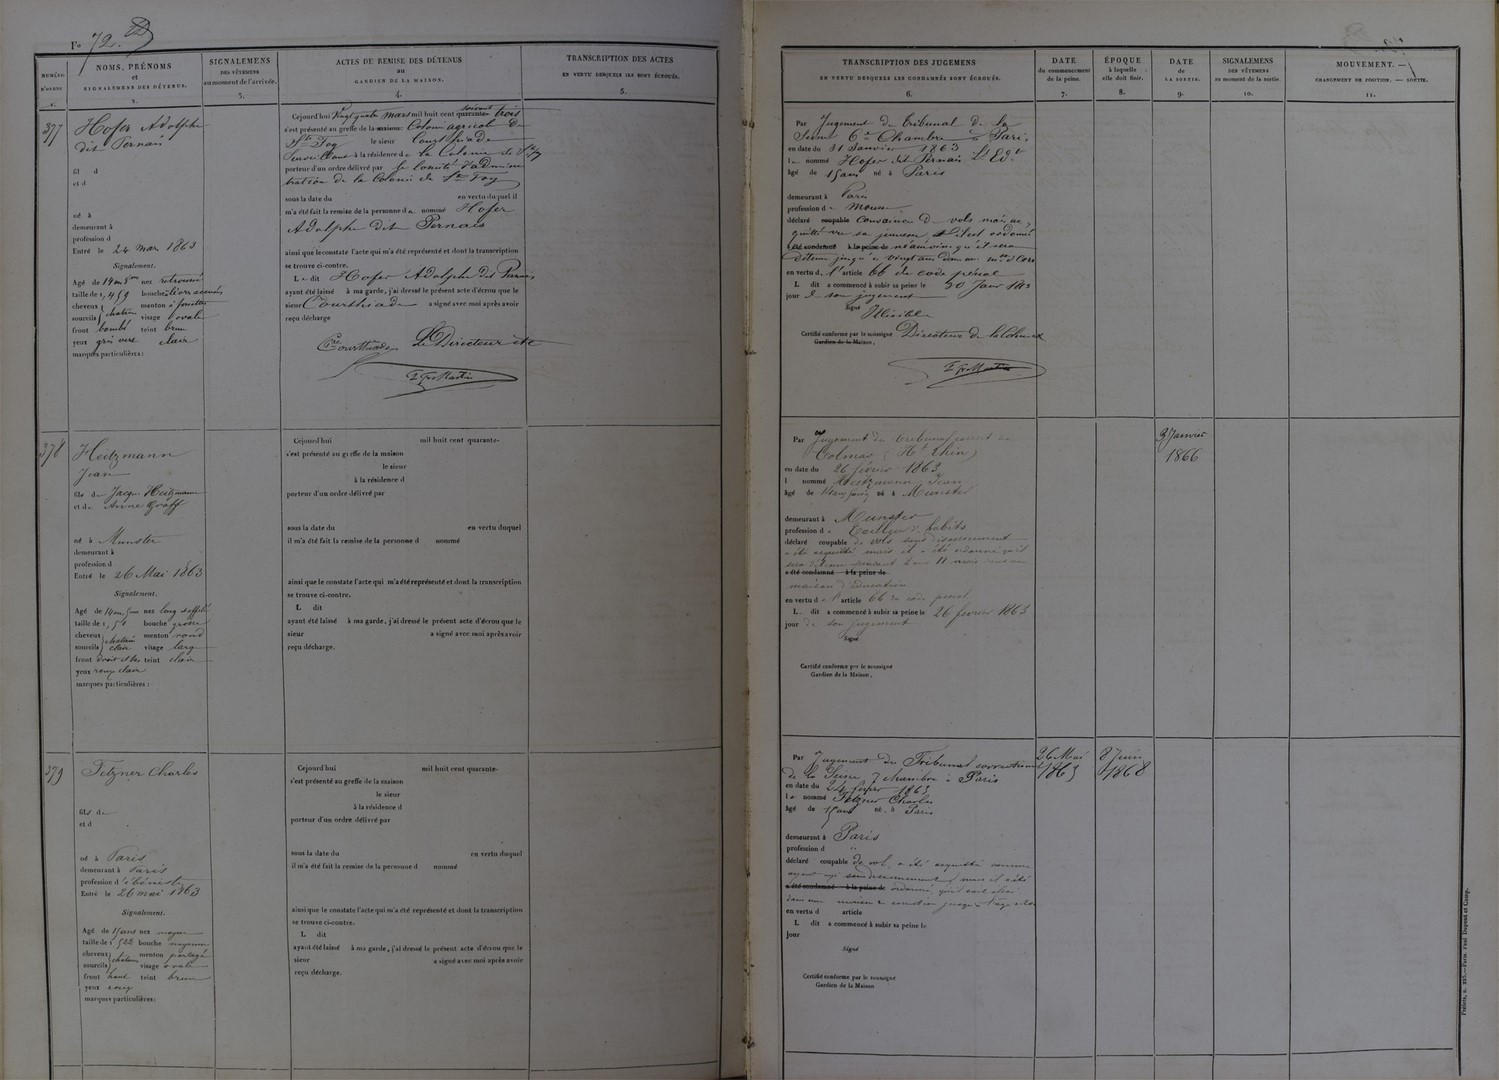 Fo 72.
NUMÉRO D'ORDRE
1.
NOMS, PRÉNOMS
et
SIGNALEMENS DES DÉTENUS.
2.
SIGNALEMENS
DES VÊTEMENS
au moment de l'arrivée.
3.
ACTES DE REMISE DES DÉTENUS
au
GARDIEN DE LA MAISON.
4.
TRANSCRIPTION DES ACTES
EN VERTU DESQUELS ILS SONT ÉCROUÉS.
5.
377
Hofer Adolphe
dit Pernais
fil d
et d
né à
demeurant à
profession d
Entré le 24 Mars 1863
Signalement.
Agé de 14 ans nez retroussé
taille de 1, 459 bouche
cheveux menton à fossette
sourcils chatain visage ovale
front bombé teint brun
yeux gris vert clair
marques particulières :
Cejourd'hui Vingt quatre Mars mil huit cent soixante trois
s'est présenté au greffe de la maison Colonie agricole de
Ste Foy le sieur Courthiade
Surveillant à la résidence de la Colonie de Ste Foy
porteur d'un ordre délivré par le Comité d'admini
tration de la Colonie de Ste Foy
sous la date du en vertu duquel il
m'a été fait la remise de la personne d nommé Hofer
Adolphe dit Pernais
ainsi que le constate l'acte qui m'a été représenté et dont la transcription
se trouve ci-contre.
L dit Hofer Adolphe dit Pernais
ayant été laissé à ma garde, j'ai dressé le présent acte d'écrou que le
sieur Courthiade a signé avec moi après avoir
reçu décharge
Courthiade Le Directeur
Martin
378
Heitzmann
Jean
fils de Jacques Heitzmann
et de Anne Graff
né à Munster
demeurant à
profession d
Entré le 26 Mai 1863
Signalement.
Agé de 14 ans nez long
taille de 1, 51 bouche grosse
cheveux menton rond
sourcils chatain clair visage large
front droit teint clair
yeux roux clair
marques particulières :
Cejourd'hui mil huit cent quarante-
s'est présenté au greffe de la maison
le sieur
à la résidence d
porteur d'un ordre délivré par
sous la date du en vertu duquel
il m'a été fait la remise de la personne d nommé
ainsi que le constate l'acte qui m'a été représenté et dont la transcription
se trouve ci-contre.
L dit
ayant été laissé à ma garde, j'ai dressé le présent acte d'écrou que le
sieur a signé avec moi après avoir
reçu décharge.
379
Felzner Charles
fils de
et d
né à Paris
demeurant à Paris
profession d'ébéniste
Entré le 26 mai 1863
Signalement.
Agé de 15 ans nez moyen
taille de 1, 522 bouche moyenne
cheveux menton partagé
sourcils chatain visage ovale
front haut teint brun
yeux roux
marques particulières :
Cejourd'hui mil huit cent quarante-
s'est présenté au greffe de la maison
le sieur
à la résidence d
porteur d'un ordre délivré par
sous la date du en vertu duquel
il m'a été fait la remise de la personne d nommé
ainsi que le constate l'acte qui m'a été représenté et dont la transcription
se trouve ci-contre.
L dit
ayant été laissé à ma garde, j'ai dressé le présent acte d'écrou que le
sieur a signé avec moi après avoir
reçu décharge.
TRANSCRIPTION DES JUGEMENS
EN VERTU DESQUELS LES CONDAMNÉS SONT ÉCROUÉS.
6.
DATE
du commencement
de la peine.
7.
ÉPOQUE
à laquelle
elle doit finir.
8.
DATE
de
LA SORTIE.
9.
SIGNALEMENS
DES VÊTEMENS
au moment de la sortie.
10.
MOUVEMENT.
CHANGEMENT DE POSITION. — SORTIE.
11.
Par Jugement du tribunal de la
Seine 6e Chambre à Paris
en date du 31 Janvier 1863
l nommé Hofer dit Pernais
âgé de 15 ans né à Paris
demeurant à Paris
profession d
déclaré coupable Convaincu de vols mais ac
quitté vu sa jeunesse, il est ordonné
a été condamné à la peine de néanmoins qu'il sera
détenu jusqu'à vingt ans dans une mon de Corr
en vertu d l'article 66 du code pénal
L dit a commencé à subir sa peine le 30 Janv 1863
jour de son jugement
Signé
Certifié conforme par le soussigné Directeur de la Colonie
Gardien de la Maison.
Martin
Par Jugement du tribunal correct de
Colmar (Ht Rhin)
en date du 26 février 1863
l nommé Heitzmann Jean
âgé de né à Munster
demeurant à Munster
profession d Tailleur d'habits
déclaré coupable de vols sans discernement
a été acquitté mais il a été ordonné qu'il
sera détenu pendant 2 ans 11 mois dans une
a été condamné à la peine de
maison d'éducation
en vertu d l'article 66 du code pénal
L dit a commencé à subir sa peine le 26 février 1863
jour de son jugement
Signé
Certifié conforme par le soussigné
Gardien de la Maison.
3 Janvier
1866
Par Jugement du Tribunal correctionnel
de la Seine 7 chambre à Paris
en date du 24 février 1863
le nommé Felzner Charles
âgé de 15 ans né à Paris
demeurant à Paris
profession d "
déclaré coupable de vol, a été acquitté comme
ayant agi sans discernement, mais il a été
a été condamné à la peine de ordonné, qu'il soit élevé
dans une maison de correction jusqu'à l'âge
en vertu d article
L dit a commencé à subir sa peine le
jour
Signé
Certifié conforme par le soussigné
Gardien de la Maison
26 Mai
1863
8 Juin
1868